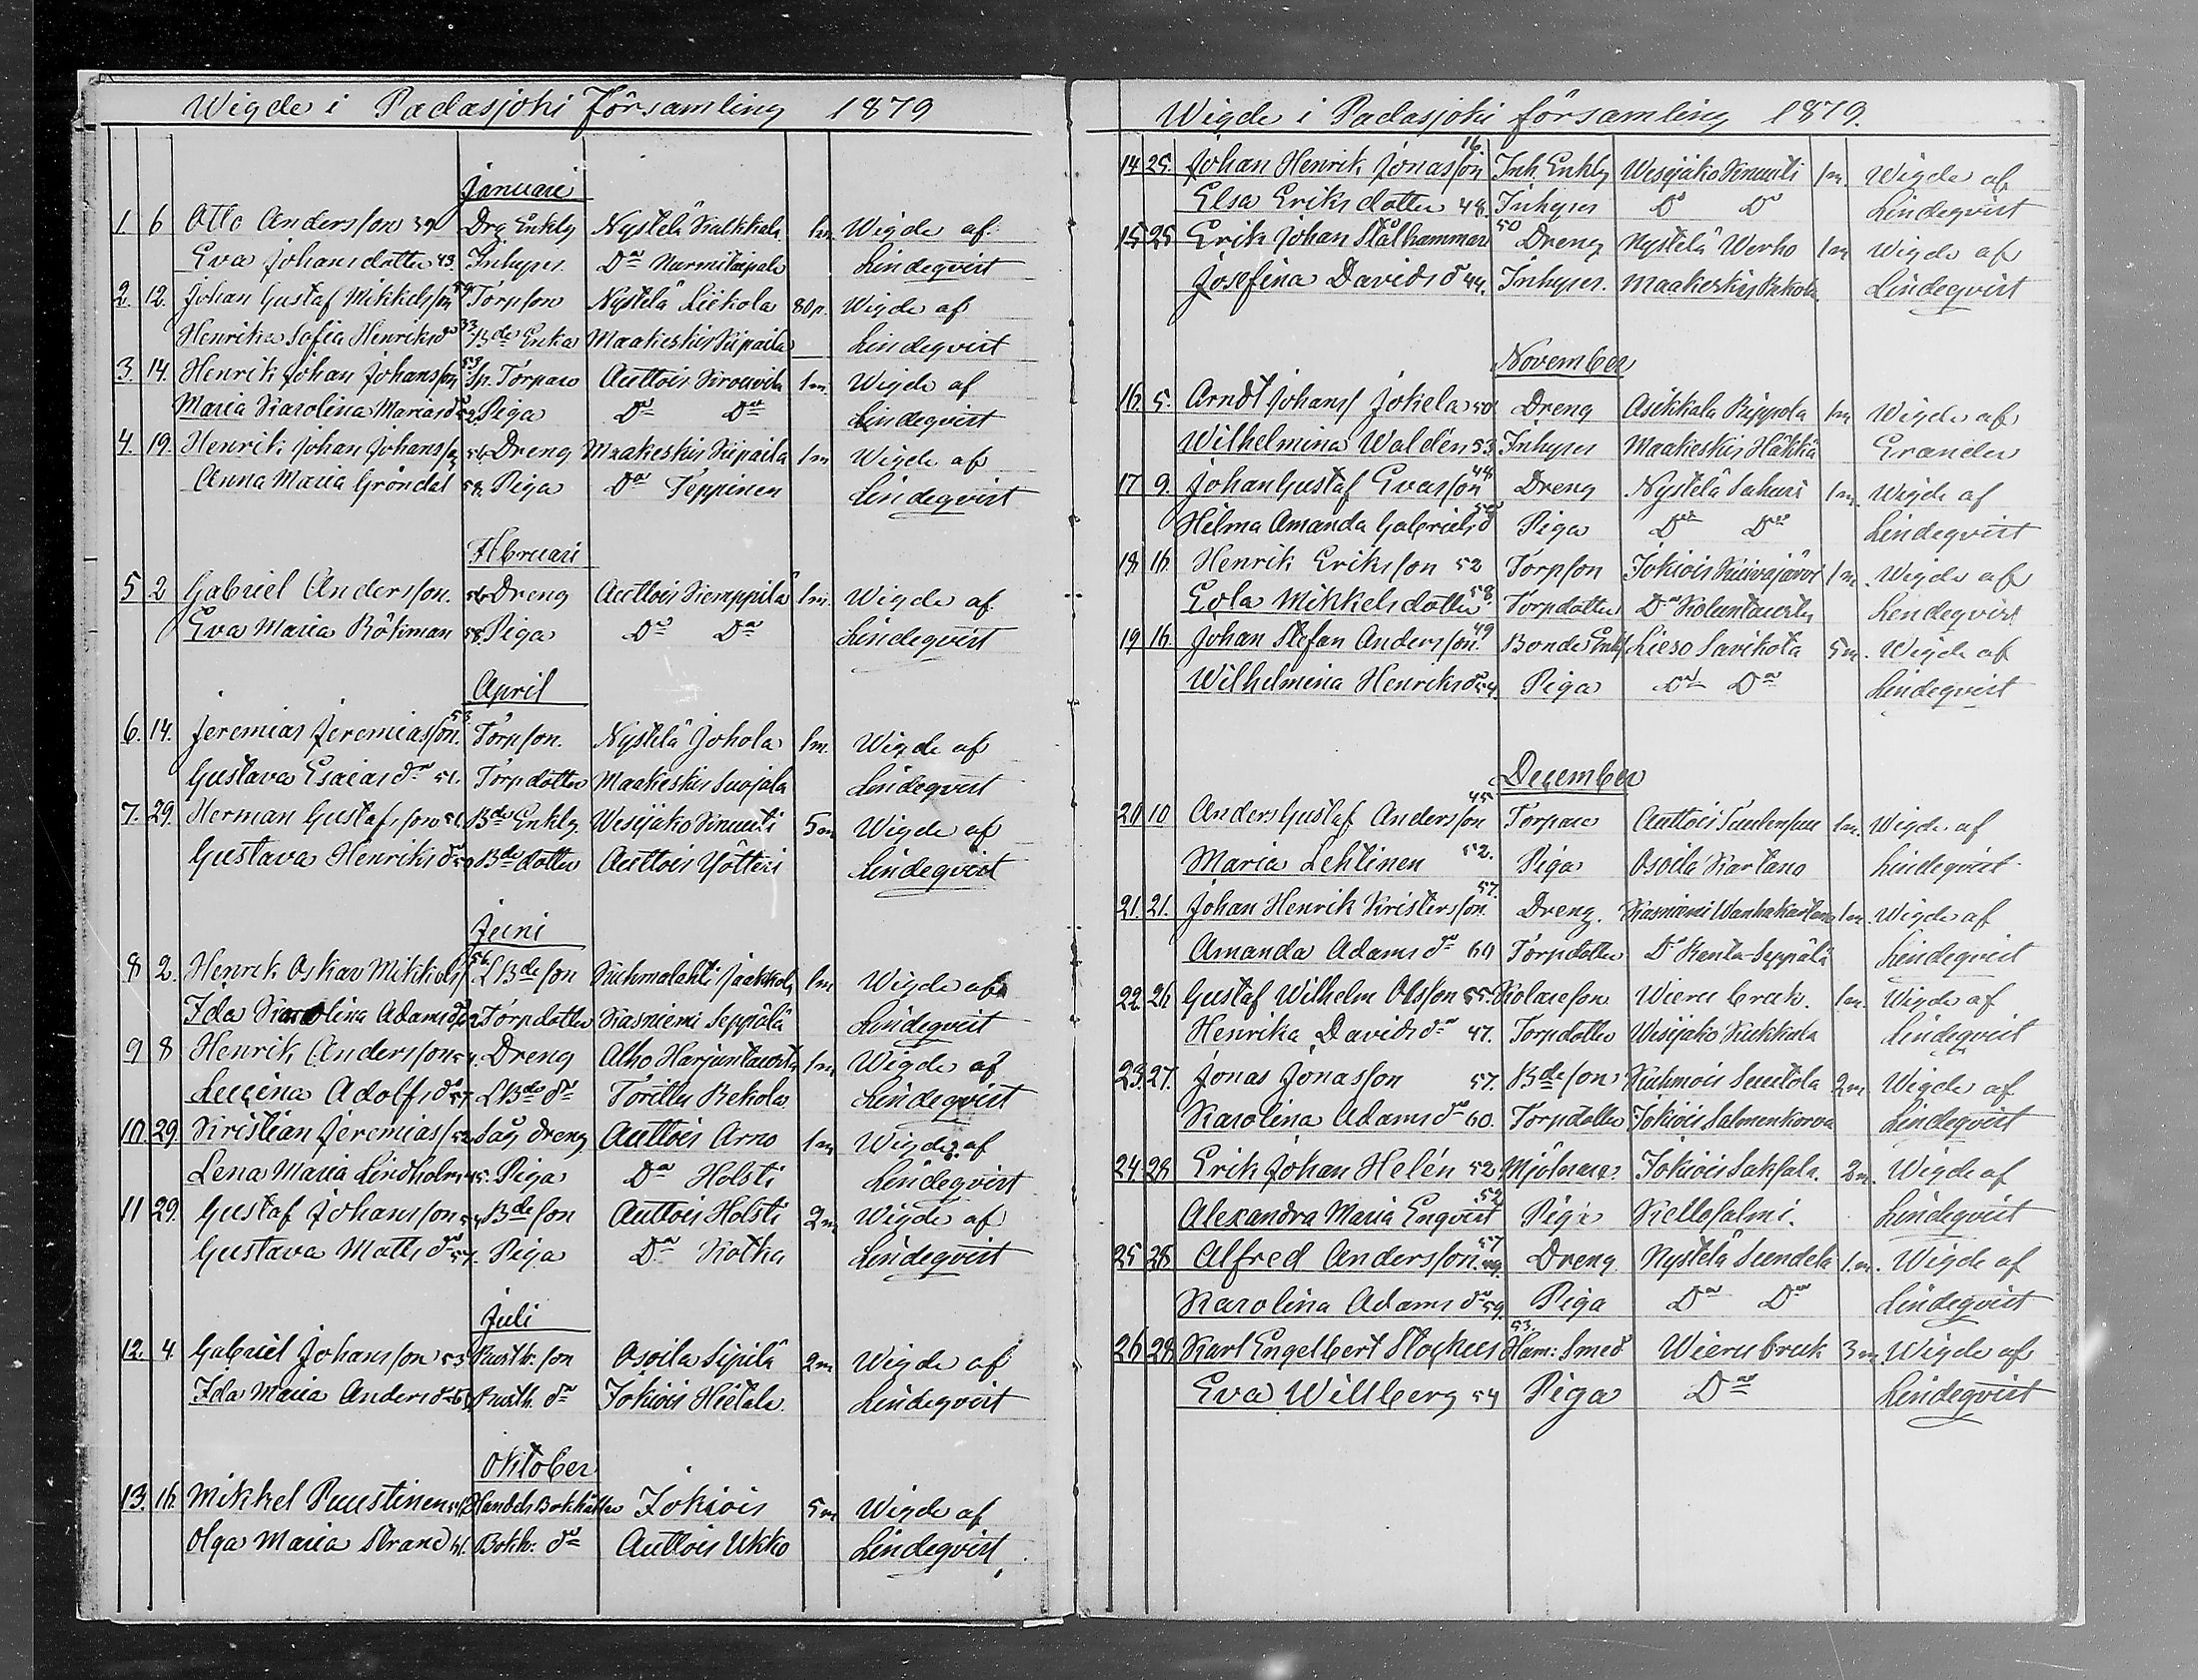 Wigde i Padasjoki Församling 1879
Januari
1 6 Otto Andersson 39 Drg Enklg Nystelä Kukkala 1m. Wigde af
Eva Johansdotter 43. Inhyses Do Nurmitaipale Lindeqvist
2. 12. Johan Gustaf Mikkelsson 59 Torpson Nystelä Liekola 80p. Wigde af
Henrika Sofia Henriksdr 33 Bde Enka Maakeskis Kipaila Lindeqvist
3. 14. Henrik Johan Johansson 53 Sp. Torpare Auttois 1m. Wigde af
Maria Karolina Mariasdr 52 Piga Do Do Lindeqvist
4. 19. Henrik Johan Johansson 56 Dreng Maakeskis Kipaila 1m Wigde af
Anna Maria Gröndal 58. Piga Do Teppinen Lindeqvist
Februari
5 2 Gabriel Andersson. 56 Dreng Auttois Kemppilä 1m. Wigde af
Eva Maria Bökman 58. Piga Do Do Lindeqvist
April
6. 14. Jeremias Jeremiasson. 53. Torpson. Nystelä Johola 1m. Wigde af
Gustava Esaiasdr 51. Torpdotter Maakeskis Suojala Lindeqvist
7. 29. Herman Gustafsson 51. Bde Enklg. Wesijako Kinusti 5m Wigde af
Gustava Henriksdr 59 Bde dotter Auttois Yötteri Lindeqvist
Juni
8 2. Henrik Oskar Mikkelss. 56. L Bde son Kuhmolahti Jaakkola 1m Wigde af
Ida Karolina Adamsdr 52 Torpdotter Kasniemi Seppälä Lindeqvist
9 8 Henrik Andersson 54. Dreng Alho Harjuntausta 1m Wigde af
Lucina Adolfsdr 57. L Bde dr Torittu Rekola Lindeqvist
10 29 Kristian Jeremiass. 52 Såg dreng Auttois Arno 1m Wigde af
Lena Maria Lindholm 45. Piga Do Holsti Lindeqvist
11 29. Gustaf Johansson 54 Bde son Auttois Holsti 2m Wigde af
Gustava Mattsdr 57. Piga Do Kotka Lindeqvist
Juli
12. 4 Gabriel Johansson 53 Rusth. son Osoila Sipilä 2m Wigde af
Ida Maria Andersdr Rusth. dr Jokiois Hietala. Lindeqvist
Oktober
13. 16. Mikkel Puustinen Handels Bokhållare Jokiois 5m Wigde af
Olga Maria Strand 61. Bokh. dr Auttois Ukko Lindeqvist
Wigde i Padasjoki församling 1879.
14 25. Johan Henrik Jonasson 16. Inh. Enklg Wesijako Kinusti 1m Wigde af
Elsa Eriksdotter 48. Inhyses Do Do Lindeqvist
15 25 Erik Johan Stålhammar 50 Dreng Nystelä Werho 1m Wigde af
Josefina Davidsd 44. Inhyses. Maakeskis Lindeqvist
November
16. 5. Arndt Johans. Jokela 50 Dreng Asikkala Kippola 1m Wigde af
Wilhelmina Waldén 53 Inhyses Maakeskis Häkkä Grander
17 9. Johan Gustaf Evasson 48 Dreng Nystelä Sakari 1m. Wigde af
Hilma Amanda Gabrielsd Piga Do Do Lindeqvist
18 16. Henrik Eriksson 52 Torpson Jokiois Kuivajärvi 1m. Wigde af
Eola Mikkelsdotter 58. Torpdotter Do Koluntausta Lindeqvist
19 16. Johan Stefan Andersson. 49 Bonde Enkl. Lieso Savikota 5m. Wigde af
Wilhelmina Henriksdr 54. Piga Do Do Lindeqvist
December
20 10 Anders Gustaf Andersson 45 Torpare Auttois 1m. Wigde af
Maria Lehtinen 52. Piga Osoila Kartano Lindeqvist
21. 21. Johan Henrik Kristersson. 57. Dreng. Kasniemi Wanhakartano 1m. Wigde af
Amanda Adamsdr 60 Torpdotter Do Ranta-Seppälä Lindeqvist
22. 26. Gustaf Wilhelm Olsson 55. Kolareson Wieru bruk. 1m. Wigde af
Henrika Davidsdr 47. Torpdotter Wesijako Kukkola Lindeqvist
23. 27. Jonas Jonasson 57. Bde son Kuhmois Suutola 2m Wigde af
Karolina Adamsdr 60. Torpdotter Jokiois Salmenkorva Lindeqvist
24 28 Erik Johan Helén 52 Mjölnare Jokiois Saksala. 2m. Wigde af
Alexandra Maria Enqvist 52 Piga Kellosalmi. Lindeqvist
25 28 Alfred Andersson. 57 Dreng Nystelä Sundela 1.m. Wigde af
Karolina Adamsdr 59. Piga Do Do Lindeqvist
26 28 Karl Engelbert Stockus 53. Ham: Smed Wieru bruk 3m Wigde af
Eva Willberg 54 Piga Do Lindeqvist